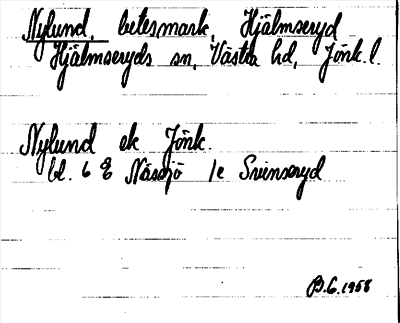 Nylund, betesmark, Hjälmseryd
Hjälmseryds sn, Västra hd, Jönk. l.
Nylund ek Jönk.
bl. 6 E Nässjö 1e Svenseryd
B.G. 1958